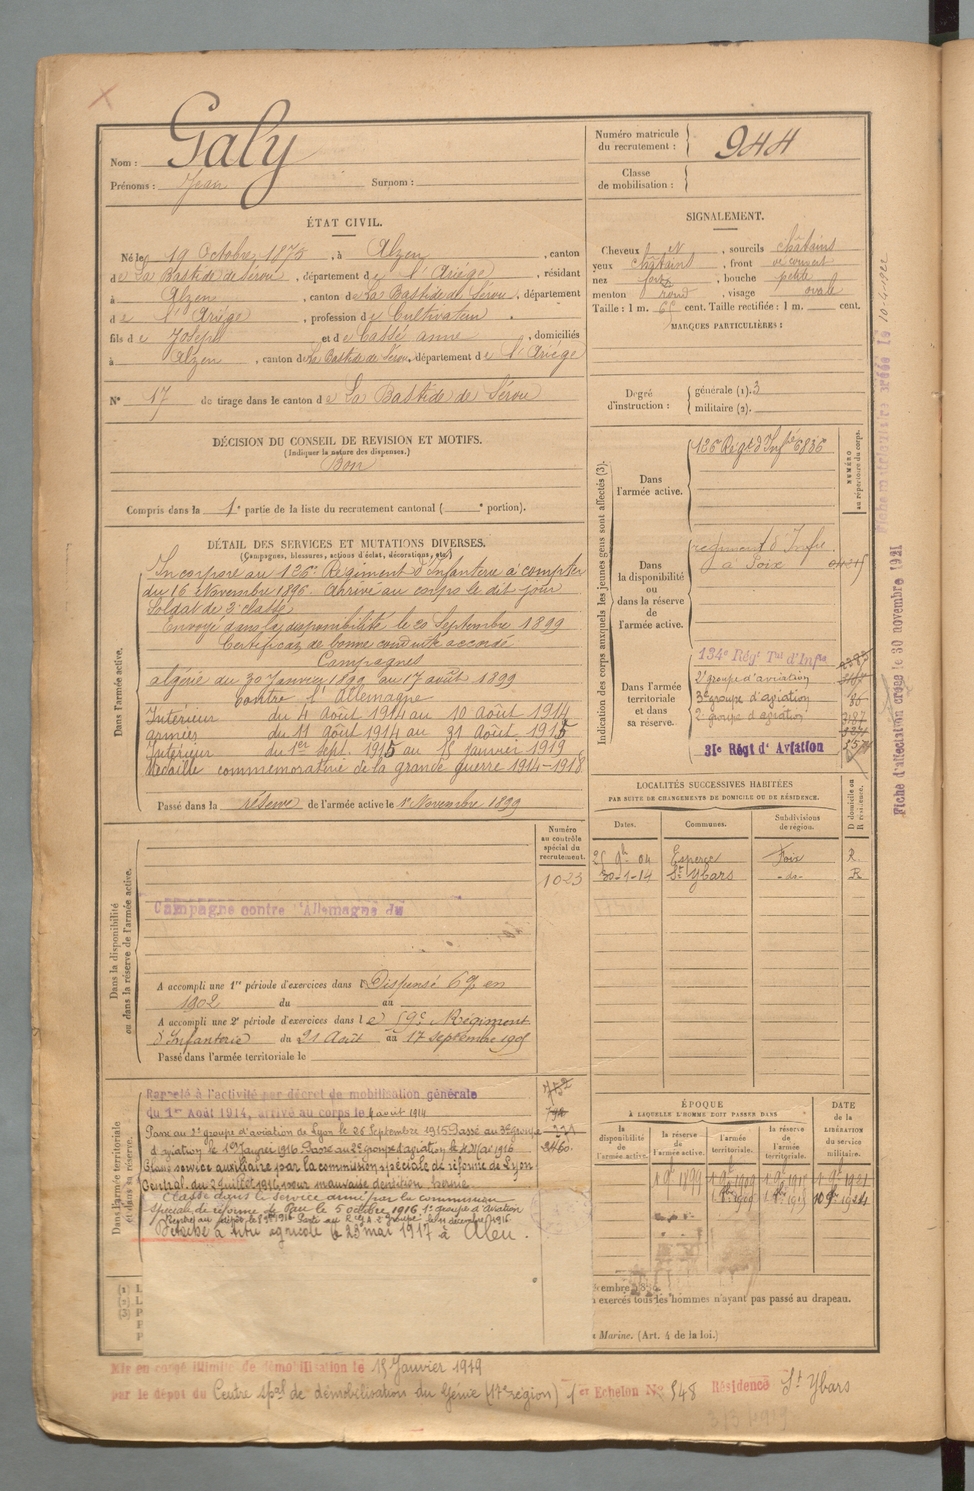 Nom : Galy
Prénoms : Jean Surnom :
Numéro matricule du recrutement : 944
Classe de mobilisation :
ÉTAT CIVIL.
Né le 19 Octobre 1875, à Alzen, canton
de La Bastide de Sérou, département de l'Ariège, résidant
à Alzen, canton de La Bastide de Sérou, département
de l'Ariège, profession de Cultivateur.
fils de Joseph et de Cassé anne, domiciliés
à Alzen, canton de La Bastide de Sérou, département de l'Ariège
N° 17 de tirage dans le canton de La Bastide de Sérou
SIGNALEMENT.
Cheveux et, sourcils châtains
yeux châtains, front découvert
nez fort, bouche petite
menton rond, visage ovale
Taille : 1 m. cent. Taille rectifiée : 1 m. cent.
MARQUES PARTICULIÈRES :
Degré d'instruction : générale (1). 3
militaire (2).
DÉCISION DU CONSEIL DE REVISION ET MOTIFS.
(Indiquer la nature des dispenses.)
Bon
Compris dans la 1e partie de la liste du recrutement cantonal ( e portion).
DÉTAIL DES SERVICES ET MUTATIONS DIVERSES.
(Campagnes, blessures, actions d'éclat, décorations, etc.)
Dans l'armée active.
Incorporé au 126e Régiment d'Infanterie à compter
du 16 Novembre 1896. Arrivé au corps le dit jour
Soldat de 2e classe
Envoyé dans la disponibilité le 20 Septembre 1899
Certificat de bonne conduite accordé
Campagnes
algérie du 30 Janvier 1899 au 17 août 1899
Contre l'Allemagne
Intérieur du 4 Août 1914 au 10 Août 1914
armées du 11 Août 1914 au 31 Août 1915
Intérieur du 1er Sept. 1915 au 15 janvier 1919
Médaille commemorative de la grande guerre 1914-1918
Passé dans la réserve de l'armée active le 1er Novembre 1899
Indication des corps auxquels les jeunes gens sont affectés (3).
NUMÉRO au répertoire du corps.
Dans l'armée active.
126e Régt d'Infie 6836
Dans la disponibilité ou dans la réserve de l'armée active.
régiment d'Infie
à Foix
Dans l'armée territoriale et dans sa réserve.
134e Régt Tal d'Infie
2e groupe d'aviation
3e groupe d'aviation
2e groupe d'aviation
31e Régt d'Aviation
LOCALITÉS SUCCESSIVES HABITÉES
PAR SUITE DE CHANGEMENTS DE DOMICILE OU DE RÉSIDENCE.
Dates. Communes. Subdivisions de région. D domicile ou R résidence.
25 9h 04 Esperce Foix R.
30-1-14 St Ybars -do- R
Dans la disponibilité ou dans la réserve de l'armée active.
Numéro au contrôle spécial du recrutement.
1023
Campagne contre l'Allemagne du
A accompli une 1re période d'exercices dans l Dispensé 6% en
1902 du au
A accompli une 2e période d'exercices dans le 59e Régiment
d'Infanterie du 21 Août au 17 septembre 1905
Passé dans l'armée territoriale le
Dans l'armée territoriale et dans sa réserve.
Rappelé à l'activité par décret de mobilisation générale
du 1er Août 1914, arrivé au corps le 4 août 1914
Passé au 2e groupe d'aviation de Lyon le 26 Septembre 1915 Passé au 3e Groupe
d'aviation le 1er Janvier 1916 Passé au 2e groupe d'aviation le Mai 1916
Classé service auxiliaire par la commission spéciale de réforme de Lyon
Central du 2 juillet 1916 pour mauvaise dentition hernie
Classé dans le service armé par la commission
spéciale de réforme de Pau le 5 octobre 1916 1er groupe d'Aviation
Détaché à titre agricole le 23 mai 1917 à Aleu.
ÉPOQUE
À LAQUELLE L'HOMME DOIT PASSER DANS
la disponibilité de l'armée active. la réserve de l'armée active. l'armée territoriale. la réserve de l'armée territoriale.
DATE de la LIBÉRATION du service militaire.
exercés tous les hommes n'ayant pas passé au drapeau.
Marine. (Art. 4 de la loi.)
Mis en congé illimité de démobilisation le 15 Janvier 1919
par le dépôt du Centre spal de démobilisation du Génie (17e région) 1er Echelon No 548 Résidence St Ybars
Fiche matriculaire créée le 10-4-1922
Fiche d'affectation créée le 30 novembre 1921